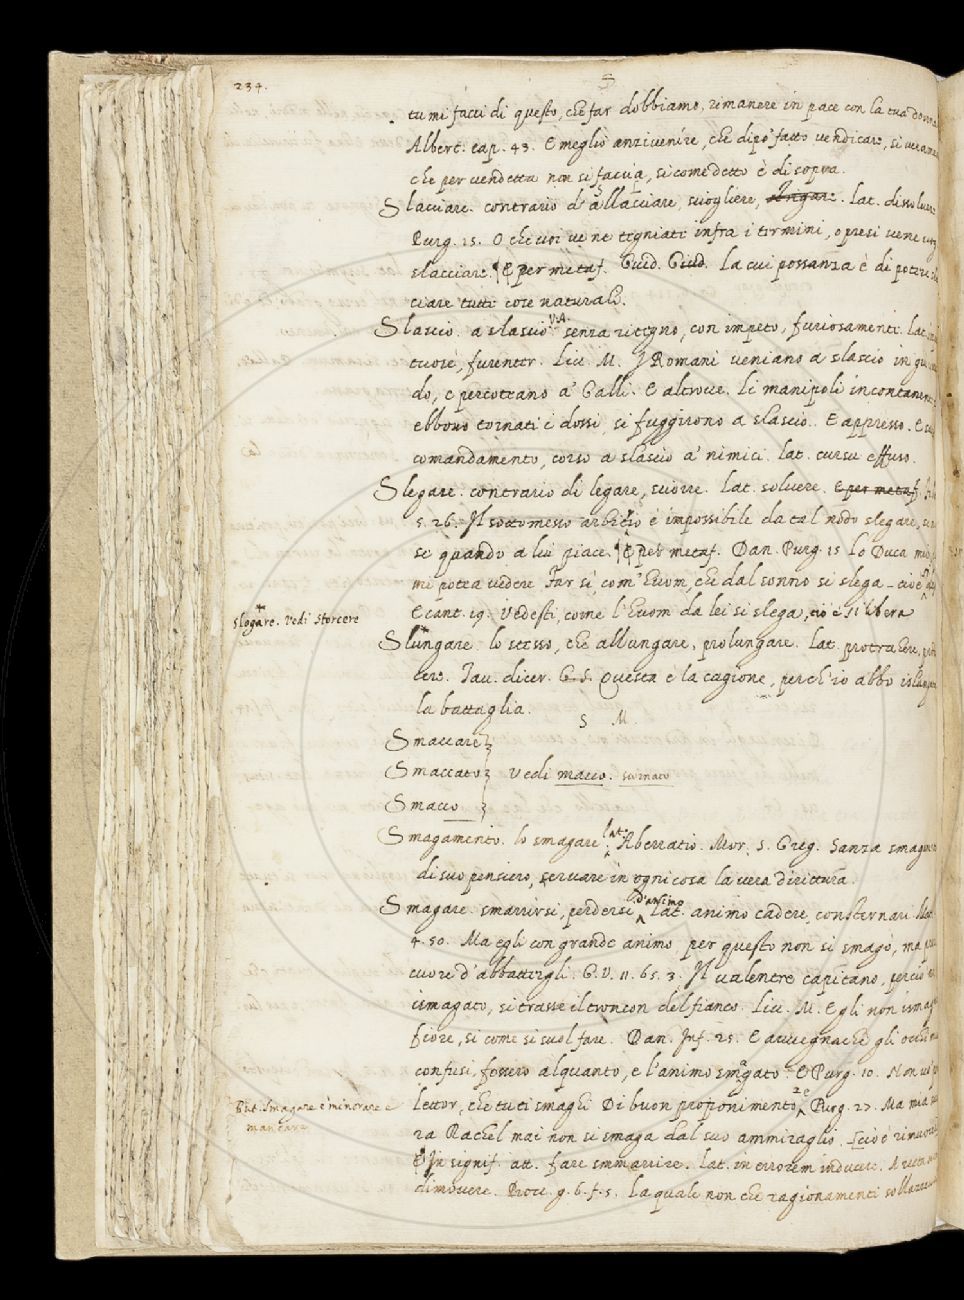 234.
tu mi facci di questo, che far dobbiamo, rimanere in pace con la tua donna
Albert. cap. 43. E meglio anzivenire, che dipo' fatto vendicare, si veramente
che per vendetta non si faccia, si come detto è di sopra.
Slacciare. contrario d'allacciare, sciogliere, Lat. dissolvere
Purg. 15. O che voi ve ne tegniate infra i termini, o presi vene
slacciare. ¶ E per metaf. Guid. Giud. La cui possanza è di potere sla
ciare tutte cose naturali.
Slascio. a slascio V.A. senza ritegno, con impeto, furiosamente. Lat.
tuose, furenter. Liv. M. I Romani veniano a slascio in
do, e percoteano a' Galli. E altrove. Li manipoli incontanente
ebbono tornati i dossi, si fuggirono a slascio. E appresso. E
comandamento, corso a slascio a' nimici. Lat. cursu effuso.
Slegare. contrario di legare, sciorre. Lat. solvere. E per metaf.
s. 26. Il sottomesso arbitrio è impossibile da tal nodo slegare, se
se quando a lui piace. ¶ E per metaf. Dan. Purg. 15 Lo Duca mio,
mi potea vedere Far si com' Huom, che dal sonno si slega - cioè
E cant. 19. Vedesti, come l'Huom da lei si slega, cio è si libera
slogare. vedi storcere
Slungare. lo stesso, che allungare, prolungare. Lat. protrahere,
cere. Tav. dicer. G. S. Questa è la cagione, perch'io abbo islungata
la battaglia.
S M.
Smaccare
Smaccato Vedi macco.
Smacco
Smagamento. lo smagare. lat. Aberratio. Mor. S. Greg. Sanza smagamento
di suo pensiero, servare in ogni cosa la vera dirittura.
Smagare. smarrirsi, perdersi d'animo Lat. animo cadere, consternari.
4. 50. Ma egli con grande animo per questo non si smagò, ma
cuore d'abbattergli. G.V. 11. 65. 3. Il valentre capitano, perciò
ismagato, si trasse il troncon del fianco. Liv. M. Egli non ismagò
fiore, si come si suol fare. Dan. Inf. 25. E avvegnache gli occhi
confusi, fossero alquanto, e l'animo smagato. E Purg. 10. Non
lettor, che tu ti smaghi Di buon proponimento, Purg. 27. Ma mia
But. Smagare è minorare e
mancare
ra Rachel mai non si smaga dal suo ammiraglio. cioè
E In signif. att. fare smmarrire. Lat. in errorem inducere.
dimovere. Bocc. g. 6. f. 5. La quale non che ragionamenti sollazzevoli